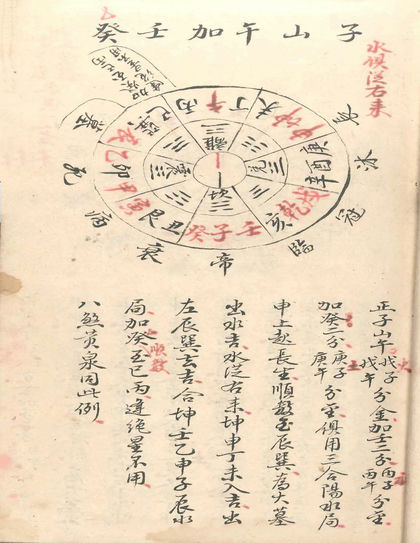 子山午加壬癸
水俱從右來
長
沐
冠
臨
帝
衰
病
死
墓
丙午丁未坤申庚酉辛戌乾亥壬子癸丑艮寅甲卯乙辰巽巳
離
兌
坎
震
正子山午戊子戊午分金加壬三分丙子丙午分金
加癸二分庚子庚午分金俱用三合陽水局
申上起長生順數至辰巽為大墓
出水吉水從右來坤申丁未入吉出
左辰巽去吉合坤壬乙申子辰水
局加癸丑巳丙違絕星不用
順數
八煞黃泉同此例